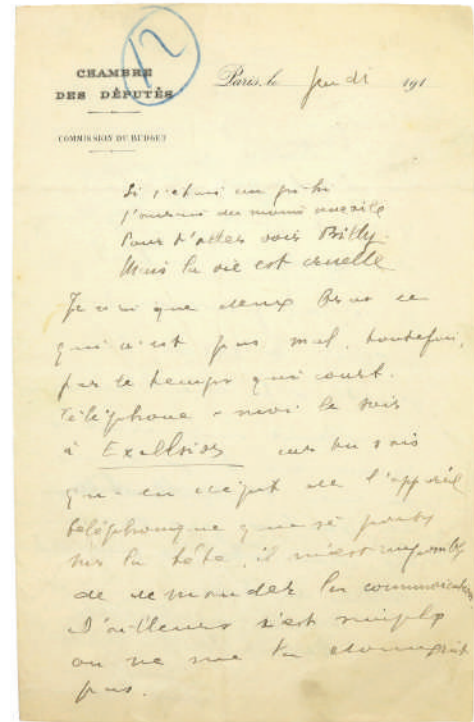 12
CHAMBRE
DES DÉPUTÉS
COMMISSION DU BUDGET
Paris, le Jeudi 191
Si j'étais un
J'aurais du moins une aile
Pour t'aller voir Billy.
Mais la vie est cruelle
Je n'ai que deux bras ce
qui n'est pas mal, toutefois,
par le temps qui court.
Téléphone-moi le soir
à Excelsior car tu sais
qu'en dépit de l'appareil
téléphonique que je porte
sur la tête, il m'est impossible
de demander la communication
D'ailleurs c'est simple
on ne me la
pas.